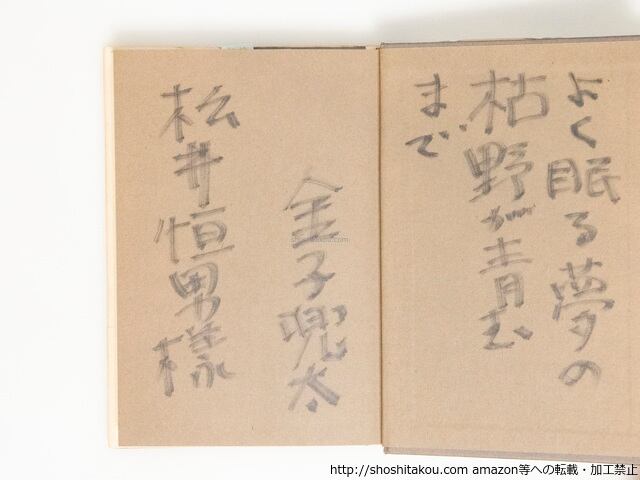 よく眠る夢の
枯野が青む
まで
金子兜太
松井恒男様
shoshitakou.com
http://shoshitakou.com amazon等への転載・加工禁止